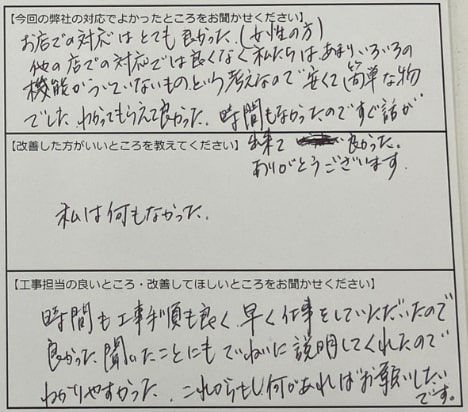 【今回の弊社の対応でよかったところをお聞かせください】
お店での対応はとても良かった。(女性の方)
他の店での対応では良くなく私たちは、あまりいろいろの
機能がついていないものという考えなので安くて簡単な物
でした。わかってもらえて良かった。時間もなかったのですぐ話が
【改善した方がいいところを教えてください】
出来て 良かった。
ありがとうございます。
私は何もなかった。
【工事担当の良いところ・改善してほしいところをお聞かせください】
時間も工事手順も良く、早く仕事をしていただいたので
良かった。聞いたことにもていねいに説明してくれたので
わかりやすかった。これからもし何があればお願いしたい
です。